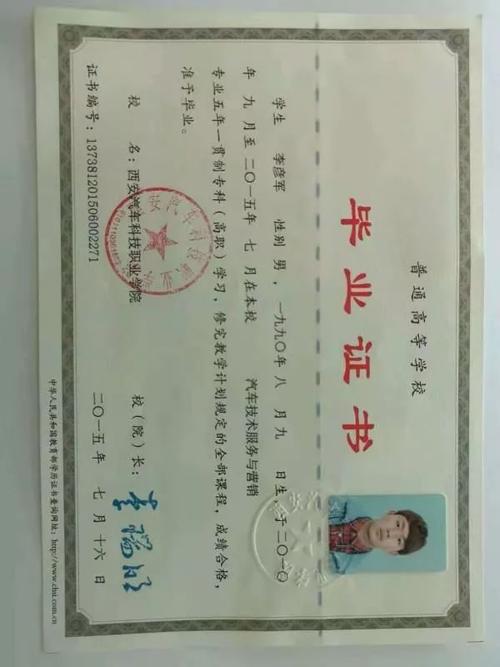 普通高等学校
毕业证书
学生 李彦军 性别 男，一九九〇年 八 月 九 日生，于二〇一〇
年 九 月至 二〇一五年 七 月在本校 汽车技术服务与营销
专业五年一贯制专科（高职）学习，修完教学计划规定的全部课程，成绩合格，
准予毕业。
校 名：西安汽车科技职业学院 校（院）长：
证书编号：137381201506002271 二〇一五年 七 月 十六 日
中华人民共和国教育部学历证书查询网址：http://www.chsi.com.cn